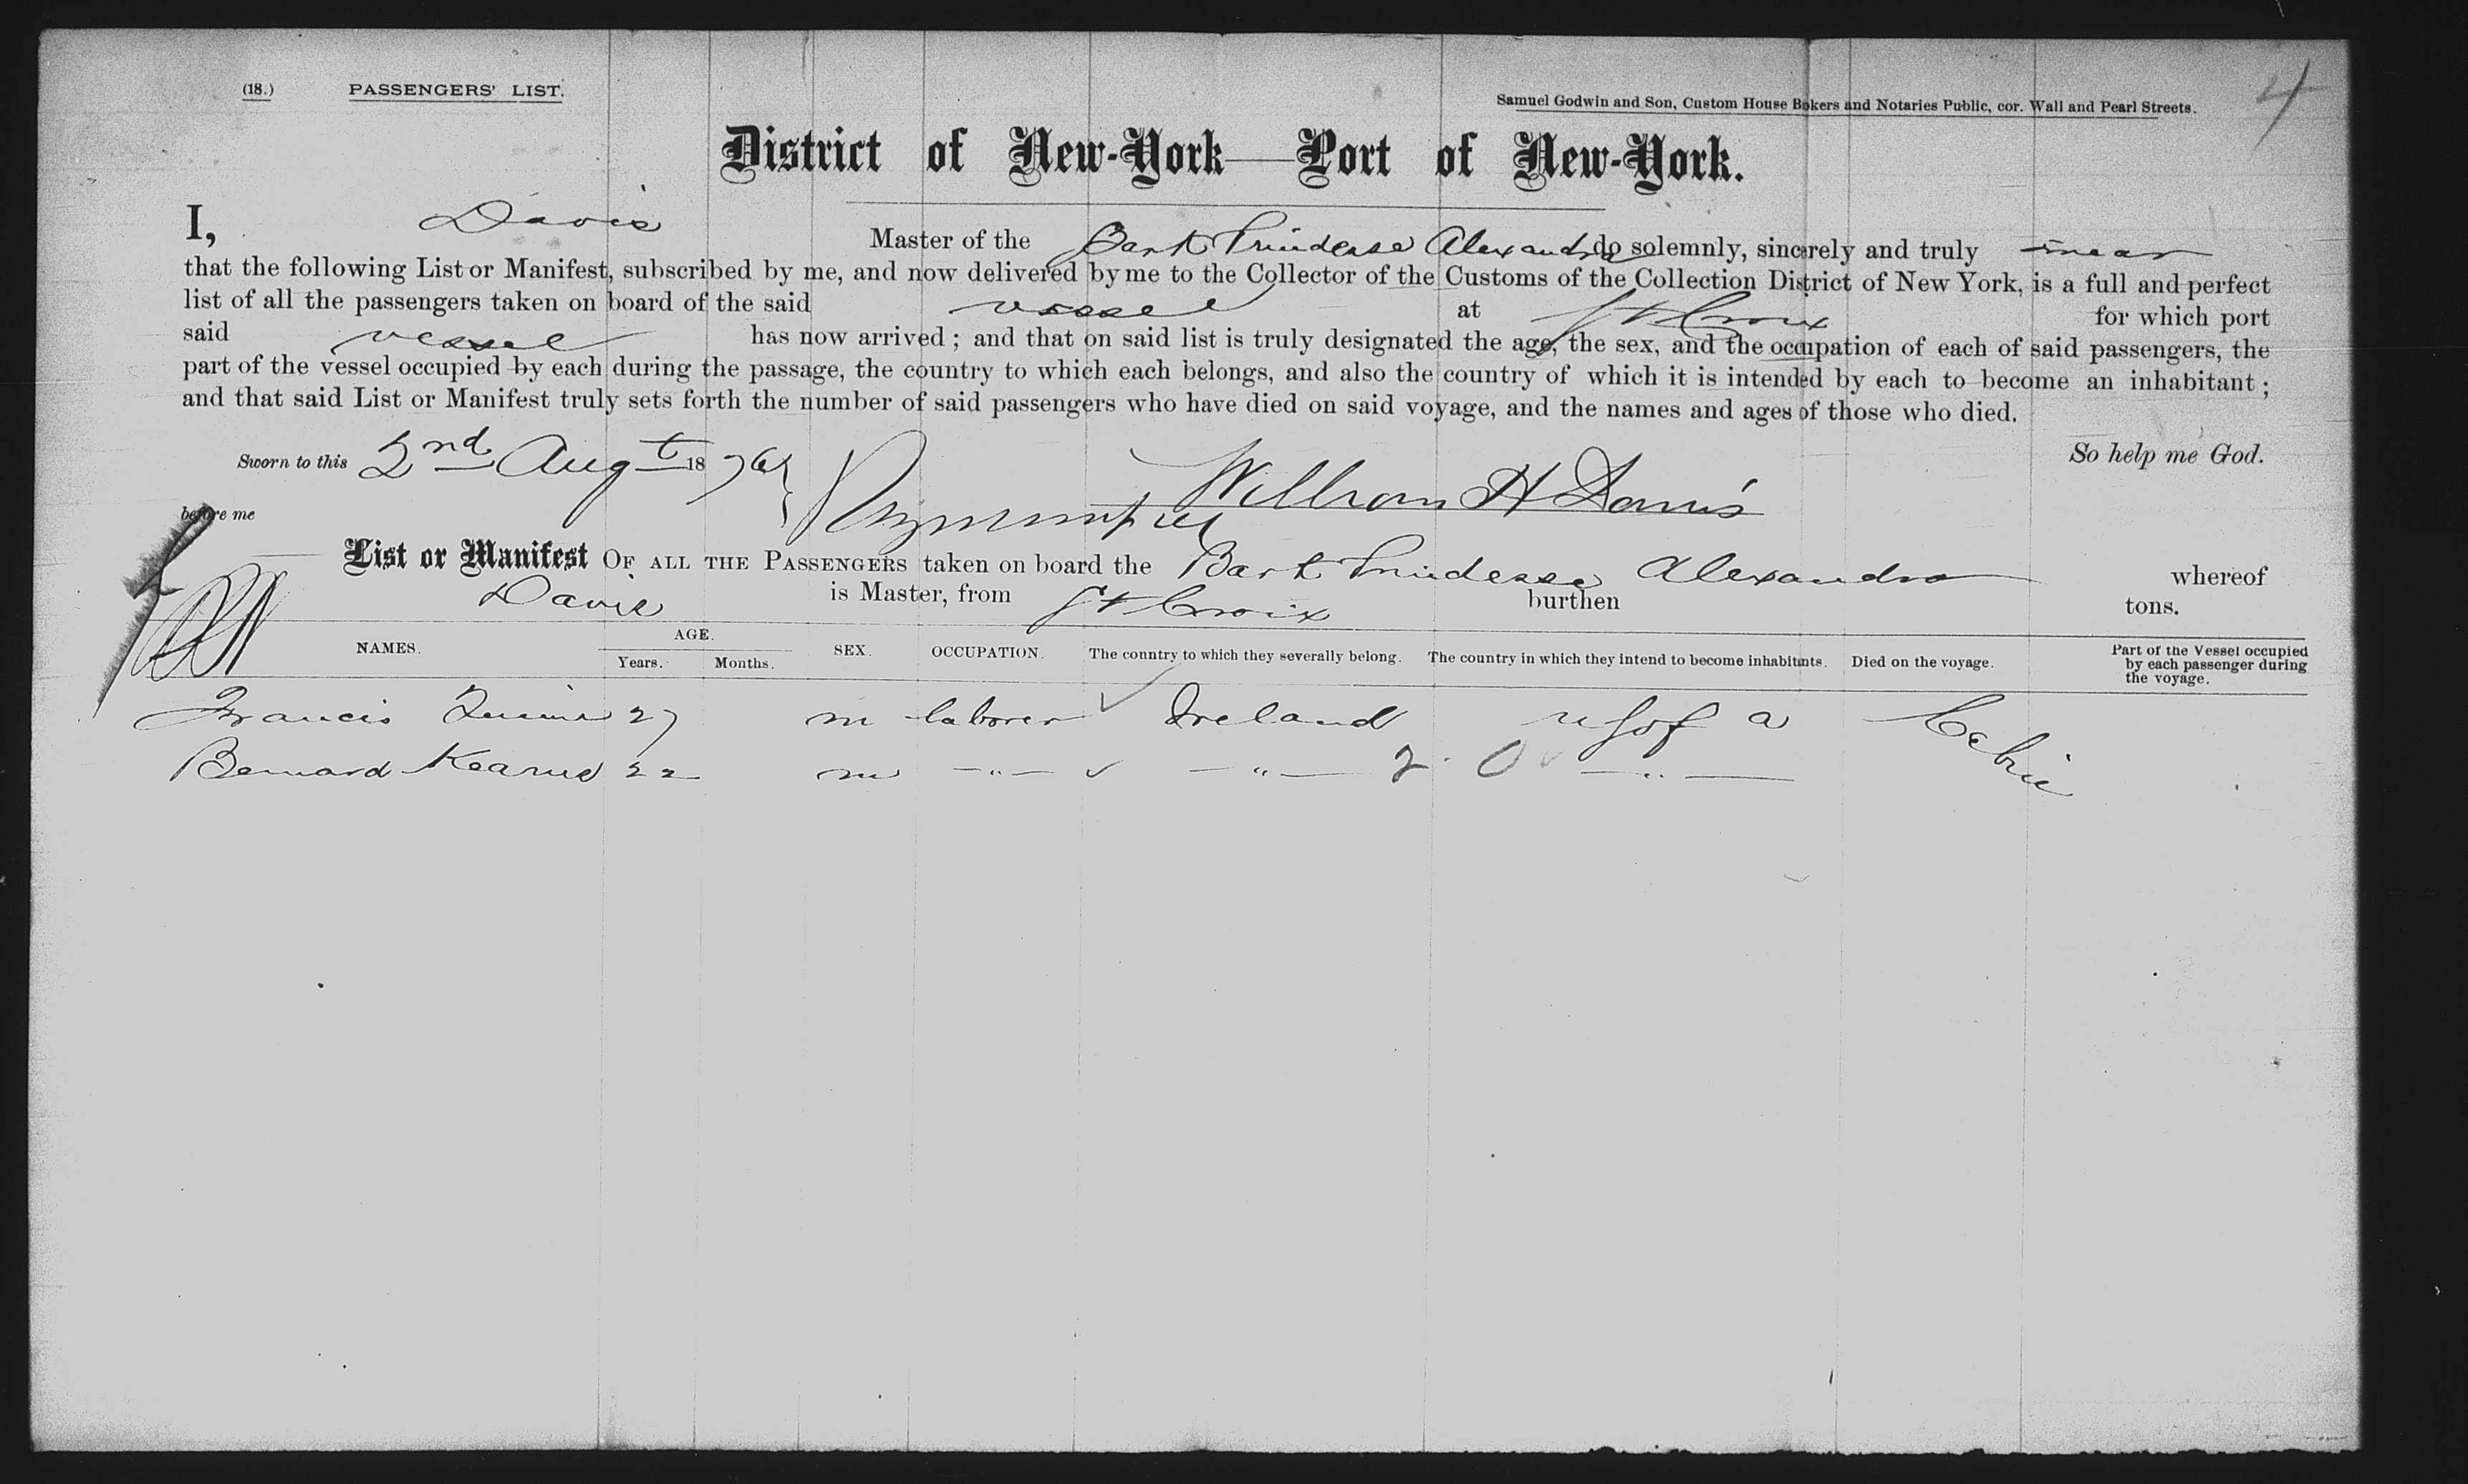 4
(18.) PASSENGERS' LIST. Samuel Godwin and Son, Custom House Bokers and Notaries Public, cor. Wall and Pearl Streets.
District of New-York—Port of New-York.
I, Davis Master of the Bark Princesse Alexandra do solemnly, sincerely and truly swear
that the following List or Manifest, subscribed by me, and now delivered by me to the Collector of the Customs of the Collection District of New York, is a full and perfect
list of all the passengers taken on board of the said vessel at St Croix for which port
said vessel has now arrived; and that on said list is truly designated the age, the sex, and the occupation of each of said passengers, the
part of the vessel occupied by each during the passage, the country to which each belongs, and also the country of which it is intended by each to become an inhabitant;
and that said List or Manifest truly sets forth the number of said passengers who have died on said voyage, and the names and ages of those who died.
Sworn to this 2nd Augt 1876 So help me God.
William H Davis
before me
List or Manifest OF ALL THE PASSENGERS taken on board the Bark Princesse Alexandra whereof
Davis is Master, from St Croix burthen tons.
NAMES. AGE. Years. Months. SEX. OCCUPATION. The country to which they severally belong. The country in which they intend to become inhabitants. Died on the voyage. Part of the Vessel occupied by each passenger during the voyage.
Francis Quinn 27 m laborer Ireland US of a Cabin
Bernard Kearne 22 m —"— —"— 2. 0 —"—